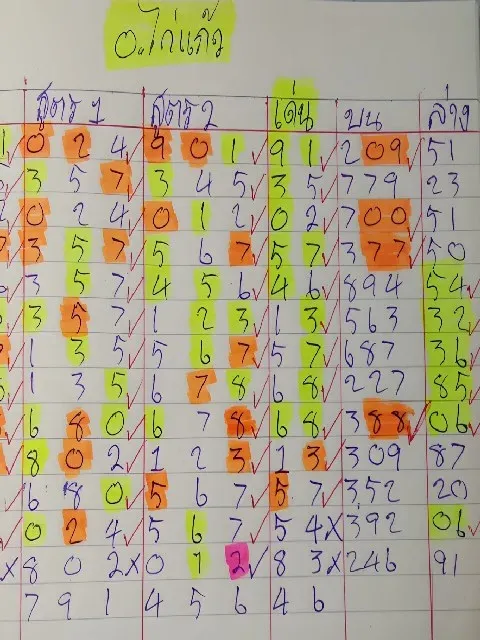 อ.ไก่แก้ว
สูตร 1 สูตร 2 เด่น บน ล่าง
0 2 4 9 0 1 9 1 209 51
3 5 7 3 4 5 3 5 779 23
0 2 4 0 1 2 0 2 700 51
3 5 7 5 6 7 5 7 377 50
3 5 7 4 5 6 4 6 894 54
3 5 7 1 2 3 1 3 563 32
1 3 5 5 6 7 5 7 687 36
1 3 5 6 7 8 6 8 227 85
6 8 0 6 7 8 6 8 388 06
8 0 2 1 2 3 1 3 309 87
6 8 0 5 6 7 5 7 352 20
0 2 4 5 6 7 5 4x 392 06
x 8 0 2x 0 1 2 8 3x 246 91
7 9 1 4 5 6 4 6